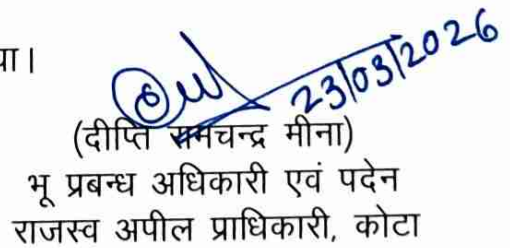 या।
23/03/2026
(दीप्ति रामचन्द्र मीना)
भू प्रबन्ध अधिकारी एवं पदेन
राजस्व अपील प्राधिकारी, कोटा